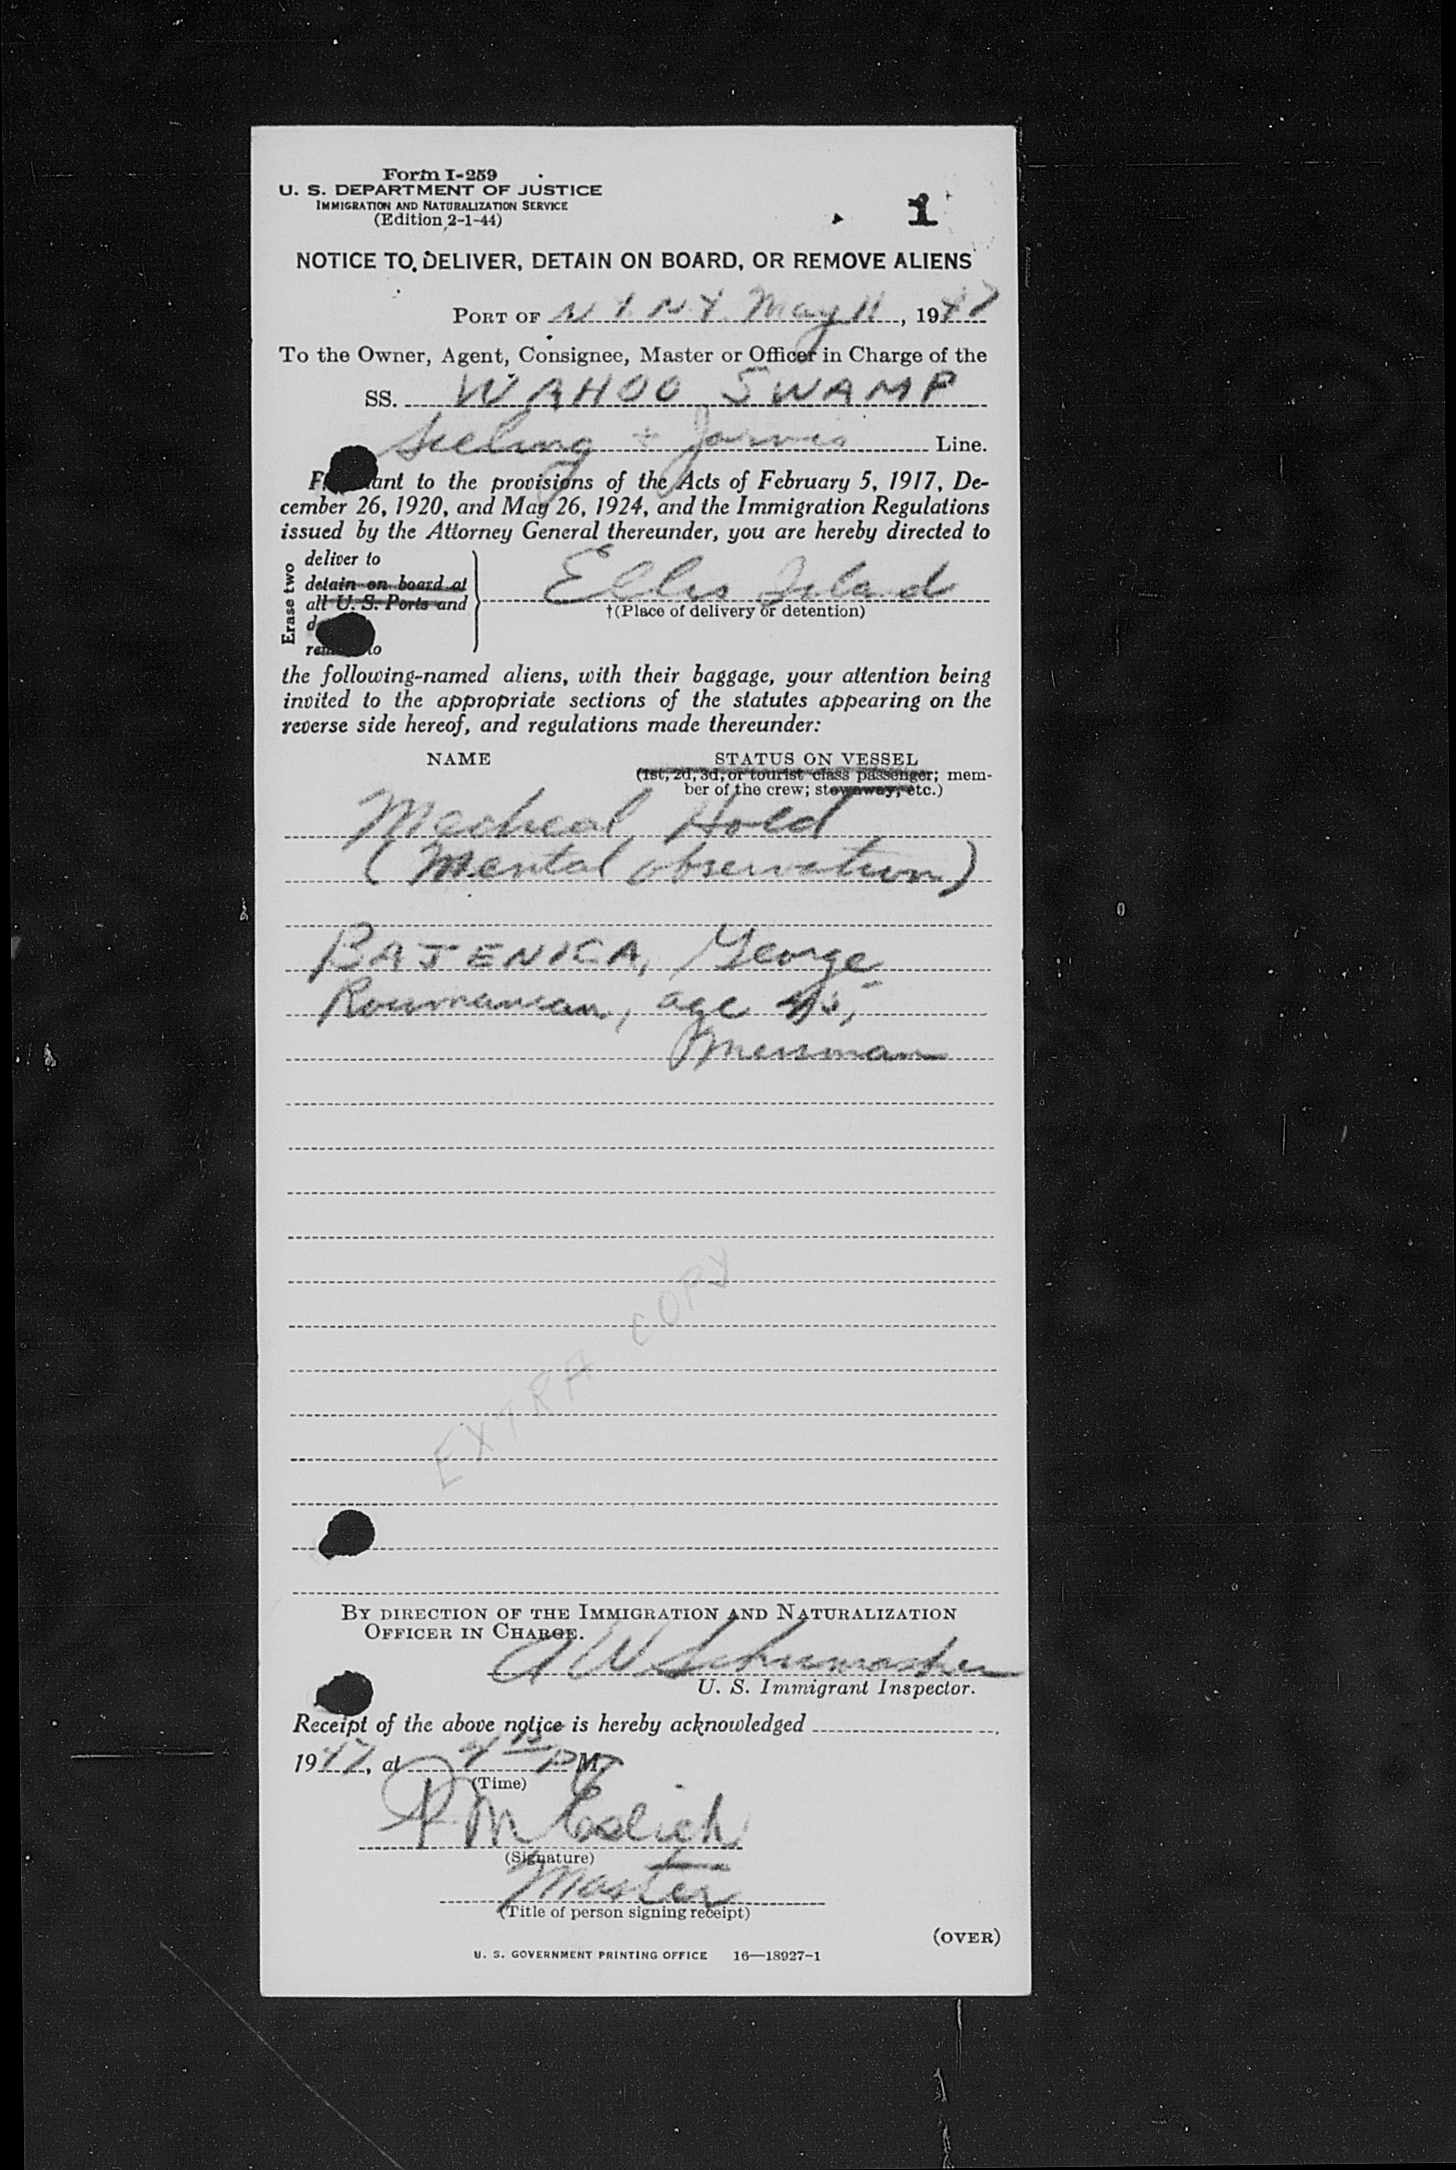 Form I-259
U. S. DEPARTMENT OF JUSTICE
IMMIGRATION AND NATURALIZATION SERVICE
(Edition 2-1-44)
1
NOTICE TO DELIVER, DETAIN ON BOARD, OR REMOVE ALIENS
PORT OF N.Y. N.Y. May 11, 1947
To the Owner, Agent, Consignee, Master or Officer in Charge of the
SS. WAHOO SWAMP
& Jarvis Line.
to the provisions of the Acts of February 5, 1917, De-
cember 26, 1920, and May 26, 1924, and the Immigration Regulations
issued by the Attorney General thereunder, you are hereby directed to
Erase two
deliver to
detain on board at
all U. S. Ports and
Ellis Island
†(Place of delivery or detention)
the following-named aliens, with their baggage, your attention being
invited to the appropriate sections of the statutes appearing on the
reverse side hereof, and regulations made thereunder:
NAME STATUS ON VESSEL
(1st, 2d, 3d, or tourist class passenger; mem-
ber of the crew; stowaway, etc.)
Medical Hold
(Mental observation)
BAJENICA, George
Roumanian, age 45,
Messman
EXTRA COPY
BY DIRECTION OF THE IMMIGRATION AND NATURALIZATION
OFFICER IN CHARGE.
A W Schumacher
U. S. Immigrant Inspector.
Receipt of the above notice is hereby acknowledged
1947, at 4 15 P M.
(Time)
M Eslich
(Signature)
Master
(Title of person signing receipt)
(OVER)
U. S. GOVERNMENT PRINTING OFFICE 16—18927-1